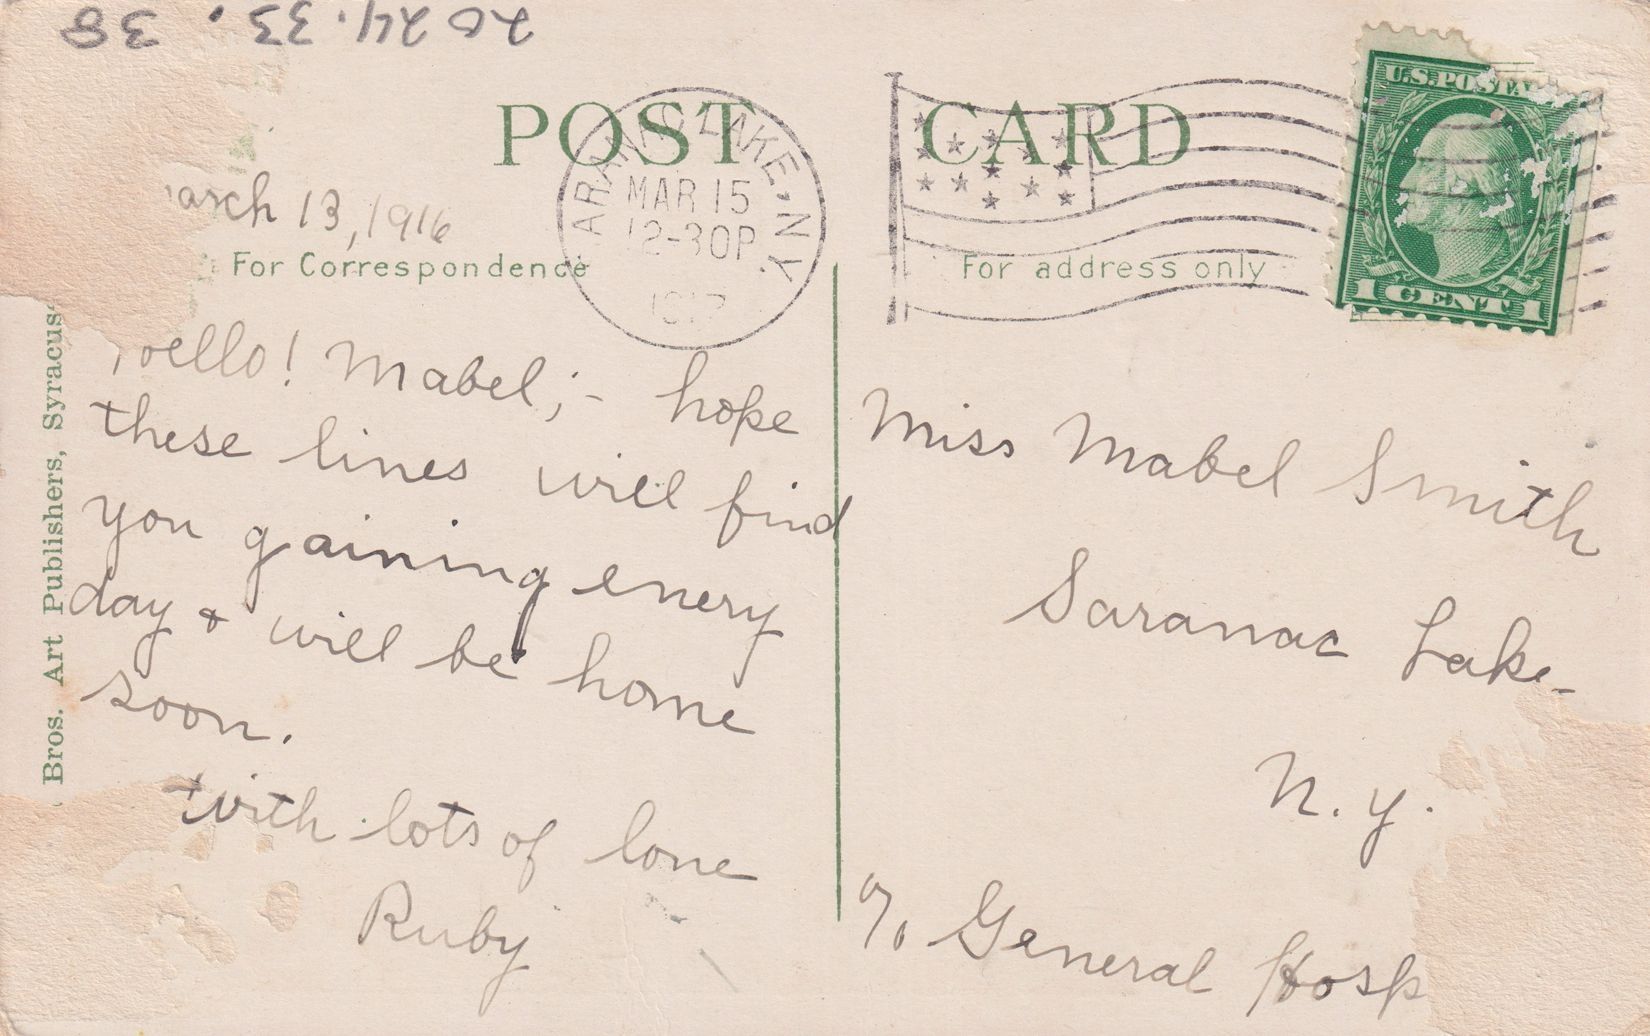 2024.33.38
POST CARD
arch 13, 1916
For Correspondence
For address only
ARANAC LAKE, N.Y.
MAR 15
12-30P
1917
U.S. POSTA
1 CENT 1
Bros. Art Publishers, Syracus
Hello! Mabel;- hope
these lines will find
you gaining every
day + will be home
soon.
with lots of love
Ruby
Miss Mabel Smith
Saranac Lake-
N.Y.
c/o General Hosp